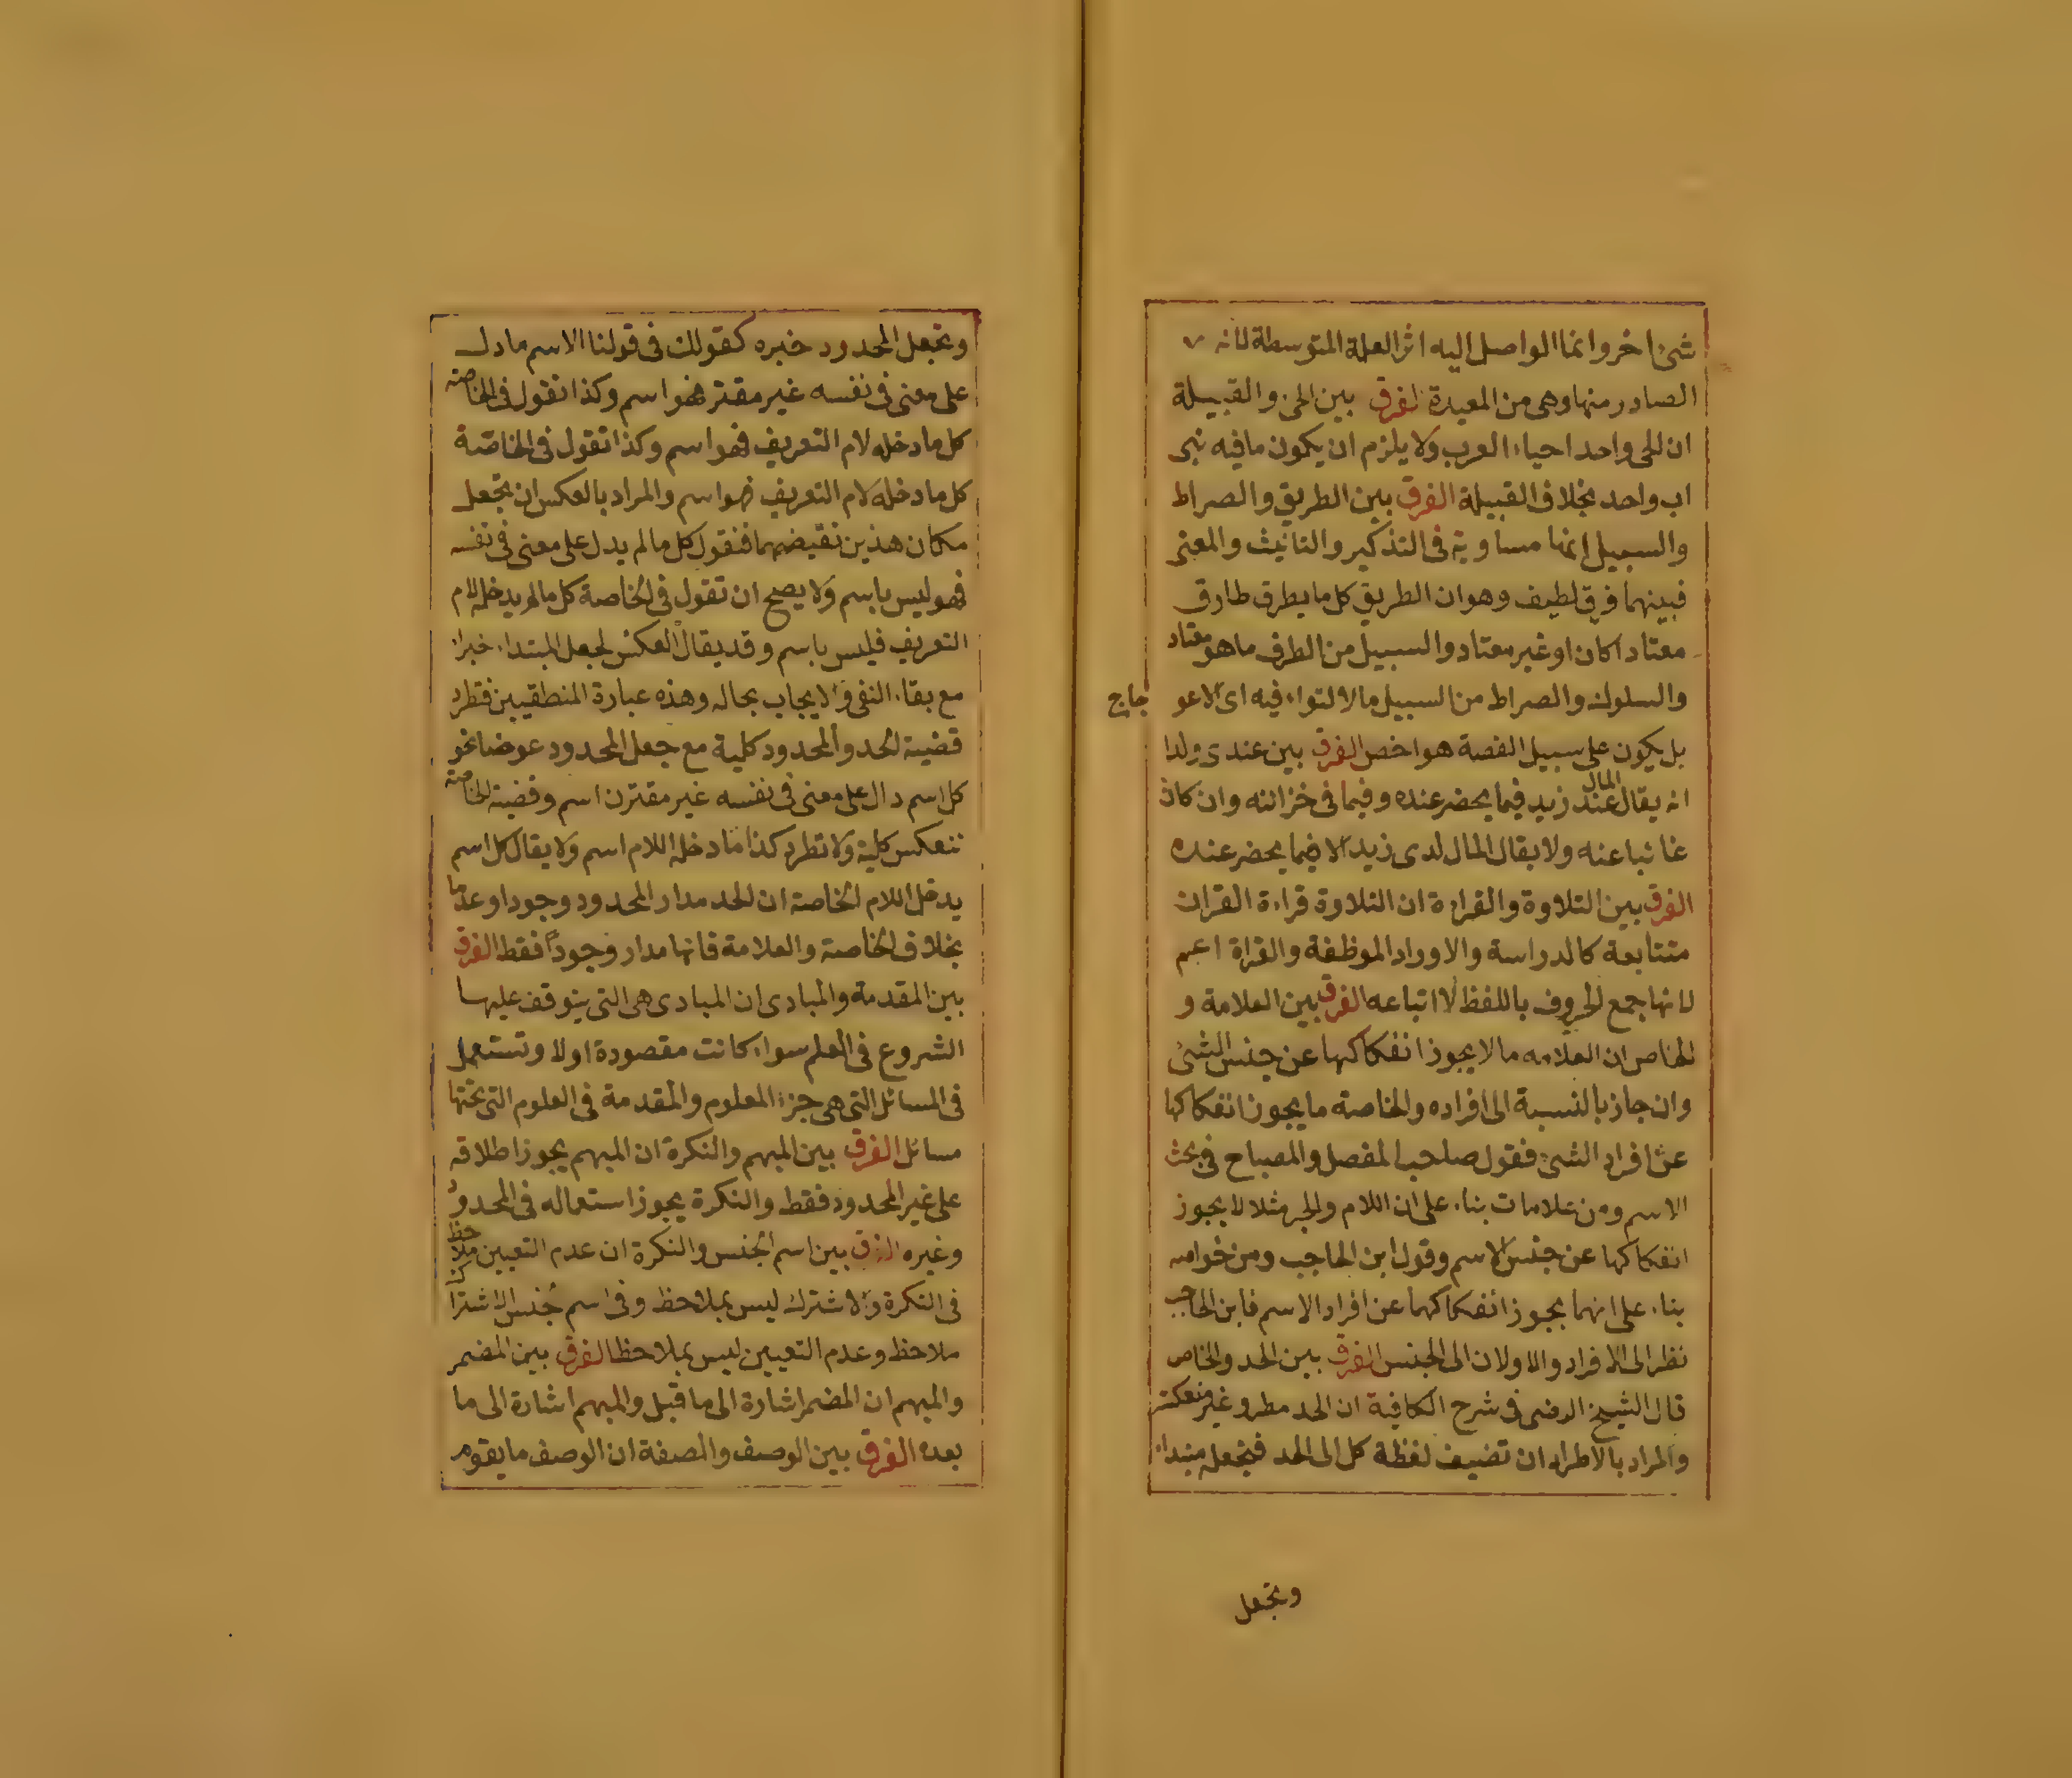 شئ اخر وانما الواصل اليه اثر العلة المتوسطة لانه
الصادر منها وهى من المعيدة الفرق بين الحى والقبيلة
ان الحى واحد احياء العرب ولا يلزم ان يكون ما فيه بنى
اب واحد بخلاف القبيلة الفرق بين الطريق والصراط
والسبيل انها مساوية فى التذكير والتانيث والمعنى
فبينهما فرق لطيف وهو ان الطريق كل ما يطرق طارق
معتاد اكان او غير معتاد والسبيل من الطرق ما هو معتاد
والسلوك والصراط من السبيل ما لا التواء فيه اى لا عوجاج
بل يكون على سبيل القصة هو اخص الفرق بين عندى ولدا
انه يقال المال عند زيد فيما يحضر عنده وفيما فى خزائنه وان كان
غائبا عنه ولا يقال المال لدى زيد الا فيما يحضر عنده
الفرق بين التلاوة والقراءة ان التلاوة قراءة القران
متتابعة كالدراسة والاوراد الموظفة والقراة اعم
لانها جمع الحروف باللفظ لا اتباعه الفرق بين العلامة و
الخاص ان العلامه ما لا يجوز انفكاكها عن جنس الشئ
وان جاز بالنسبة الى افراده والخاصة ما يجوز انفكاكها
عن افراد الشئ فقول صاحب المفصل والمصباح فى بحث
الاسم ومن علامات بناء على ان اللام والجر مثلا لا يجوز
انفكاكها عن جنس الاسم وقول ابن الحاجب ومن خواصه
بناء على انهما يجوز انفكاكهما عن افراد الاسم فابن الحاجب
نظر الى الافراد والاولان الى الجنس الفرق بين الحد والخاص
قال الشيخ الرضى فى شرح الكافية ان الحد مطرد وغير منعكس
والمراد بالاطراد ان تضيف لفظة كل الى الحد فتجعله مبتداء
وتجعل
وتجعل المحدود خبره كقولك فى قولنا الاسم ما دل
على معنى فى نفسه غير مقتر فهو اسم وكذا تقول فى الخاصة
كل ما دخله لام التعريف فهو اسم وكذا تقول فى الخاصة
كل ما دخله لام التعريف فهو اسم والمراد بالعكس ان تجعل
مكان هذين نقيضهما فنقول كل ما لم يدل على معنى فى نفسه
فهو ليس باسم ولا يصح ان تقول فى الخاصة كل ما لم يدخله لام
التعريف فليس باسم وقد يقال العكس لجعل المبتداء خبرا
مع بقاء النفى والايجاب بحاله وهذه عبارة المنطقيين فتطرد
قضية الحد والمحدود كلية مع جعل المحدود عوضا نحو
كل اسم دال على معنى فى نفسه غير مقترن اسم وقضية الخاصة
تنعكس كلية ولا تطرد كذا ما دخله اللام اسم ولا يقال كل اسم
يدخل اللام الخاصة ان الحد مدار المحدود وجودا وعدما
بخلاف الخاصة والعلامة فانها مدار وجودا فقط الفرق
بين المقدمة والمبادى ان المبادى هى التى يتوقف عليها
الشروع فى العلم سواء كانت مقصودة اولا وتستعمل
فى المسائل التى هى جزء المعلوم والمقدمة فى العلوم التى تحتها
مسائل الفرق بين المبهم والنكرة ان المبهم يجوز اطلاقه
على غير المحدود فقط والنكرة يجوز استعماله فى المحدود
وغيره الفرق بين اسم الجنس والنكرة ان عدم التعيين ملاحظ
فى النكرة والاشتراك ليس بملاحظ وفى اسم جنس الاشتراك
ملاحظ وعدم التعيين ليس بملاحظ الفرق بين المضمر
والمبهم ان المضمر اشارة الى ما قبل والمبهم اشارة الى ما
بعده الفرق بين الوصف والصفة ان الوصف ما يقوم